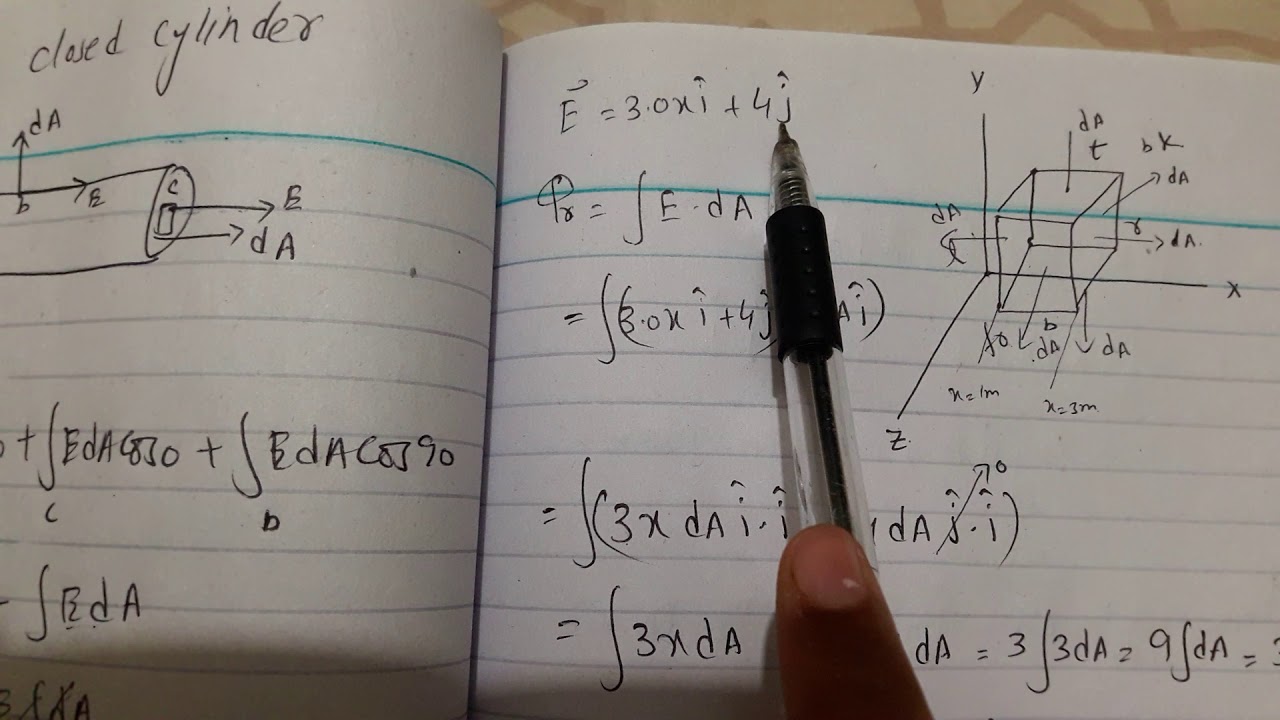 closed cylinder
dA
b
E
c
E
dA
+ ∫EdA cos0 + ∫EdA cos90
c
b
∫EdA
E⃗ = 3.0xî + 4ĵ
Φr = ∫E·dA
= ∫(3.0xî + 4ĵ) Aî)
= ∫(3x dA î·î dA ĵ·î)
0
= ∫3xdA dA = 3∫3dA = 9∫dA =
y
dA
t
bK
dA
dA
r
dA
x
b
dA
dA
x=1m
x=3m
Z